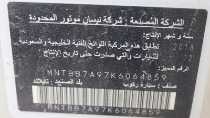 الشركة المُصنعة: شركة نيسان موتور المحدودة
سنة و شهر الإنتاج: 2018
تطابق هذه المركبة اللوائح الفنية الخليجية والسعودية
للسيارات والتي صدرت حتى تاريخ الإنتاج
الرقم المميز:
MNTBB7A97K6064859
سيارة ركوب
بلد المصنع: تايلاند